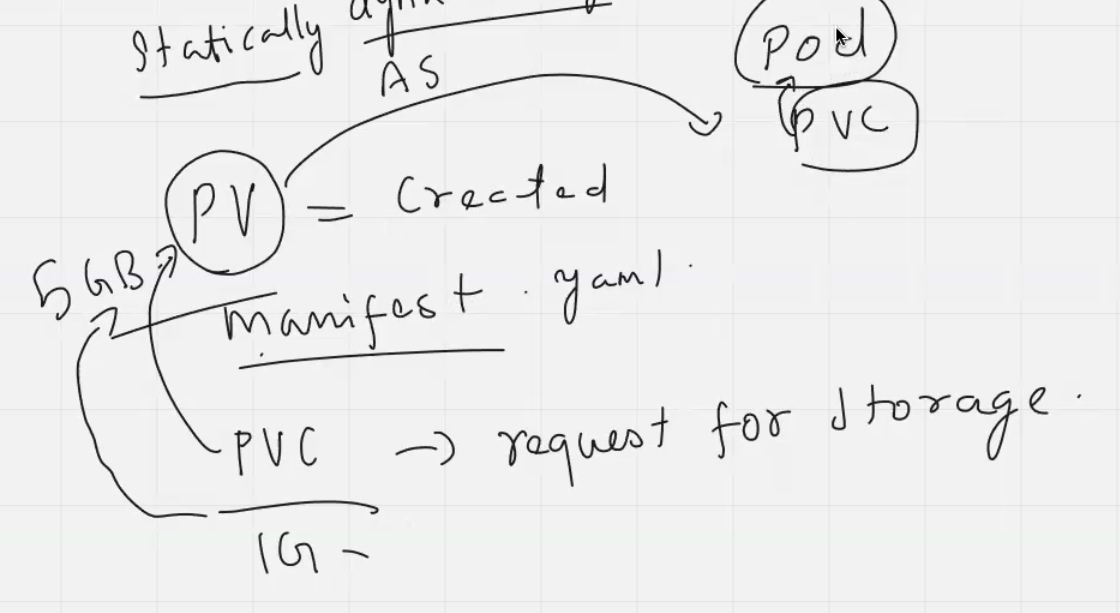 Statically
AS
Pod
PVC
PV = Created
5GB
manifest. yaml.
PVC → request for storage.
1G -